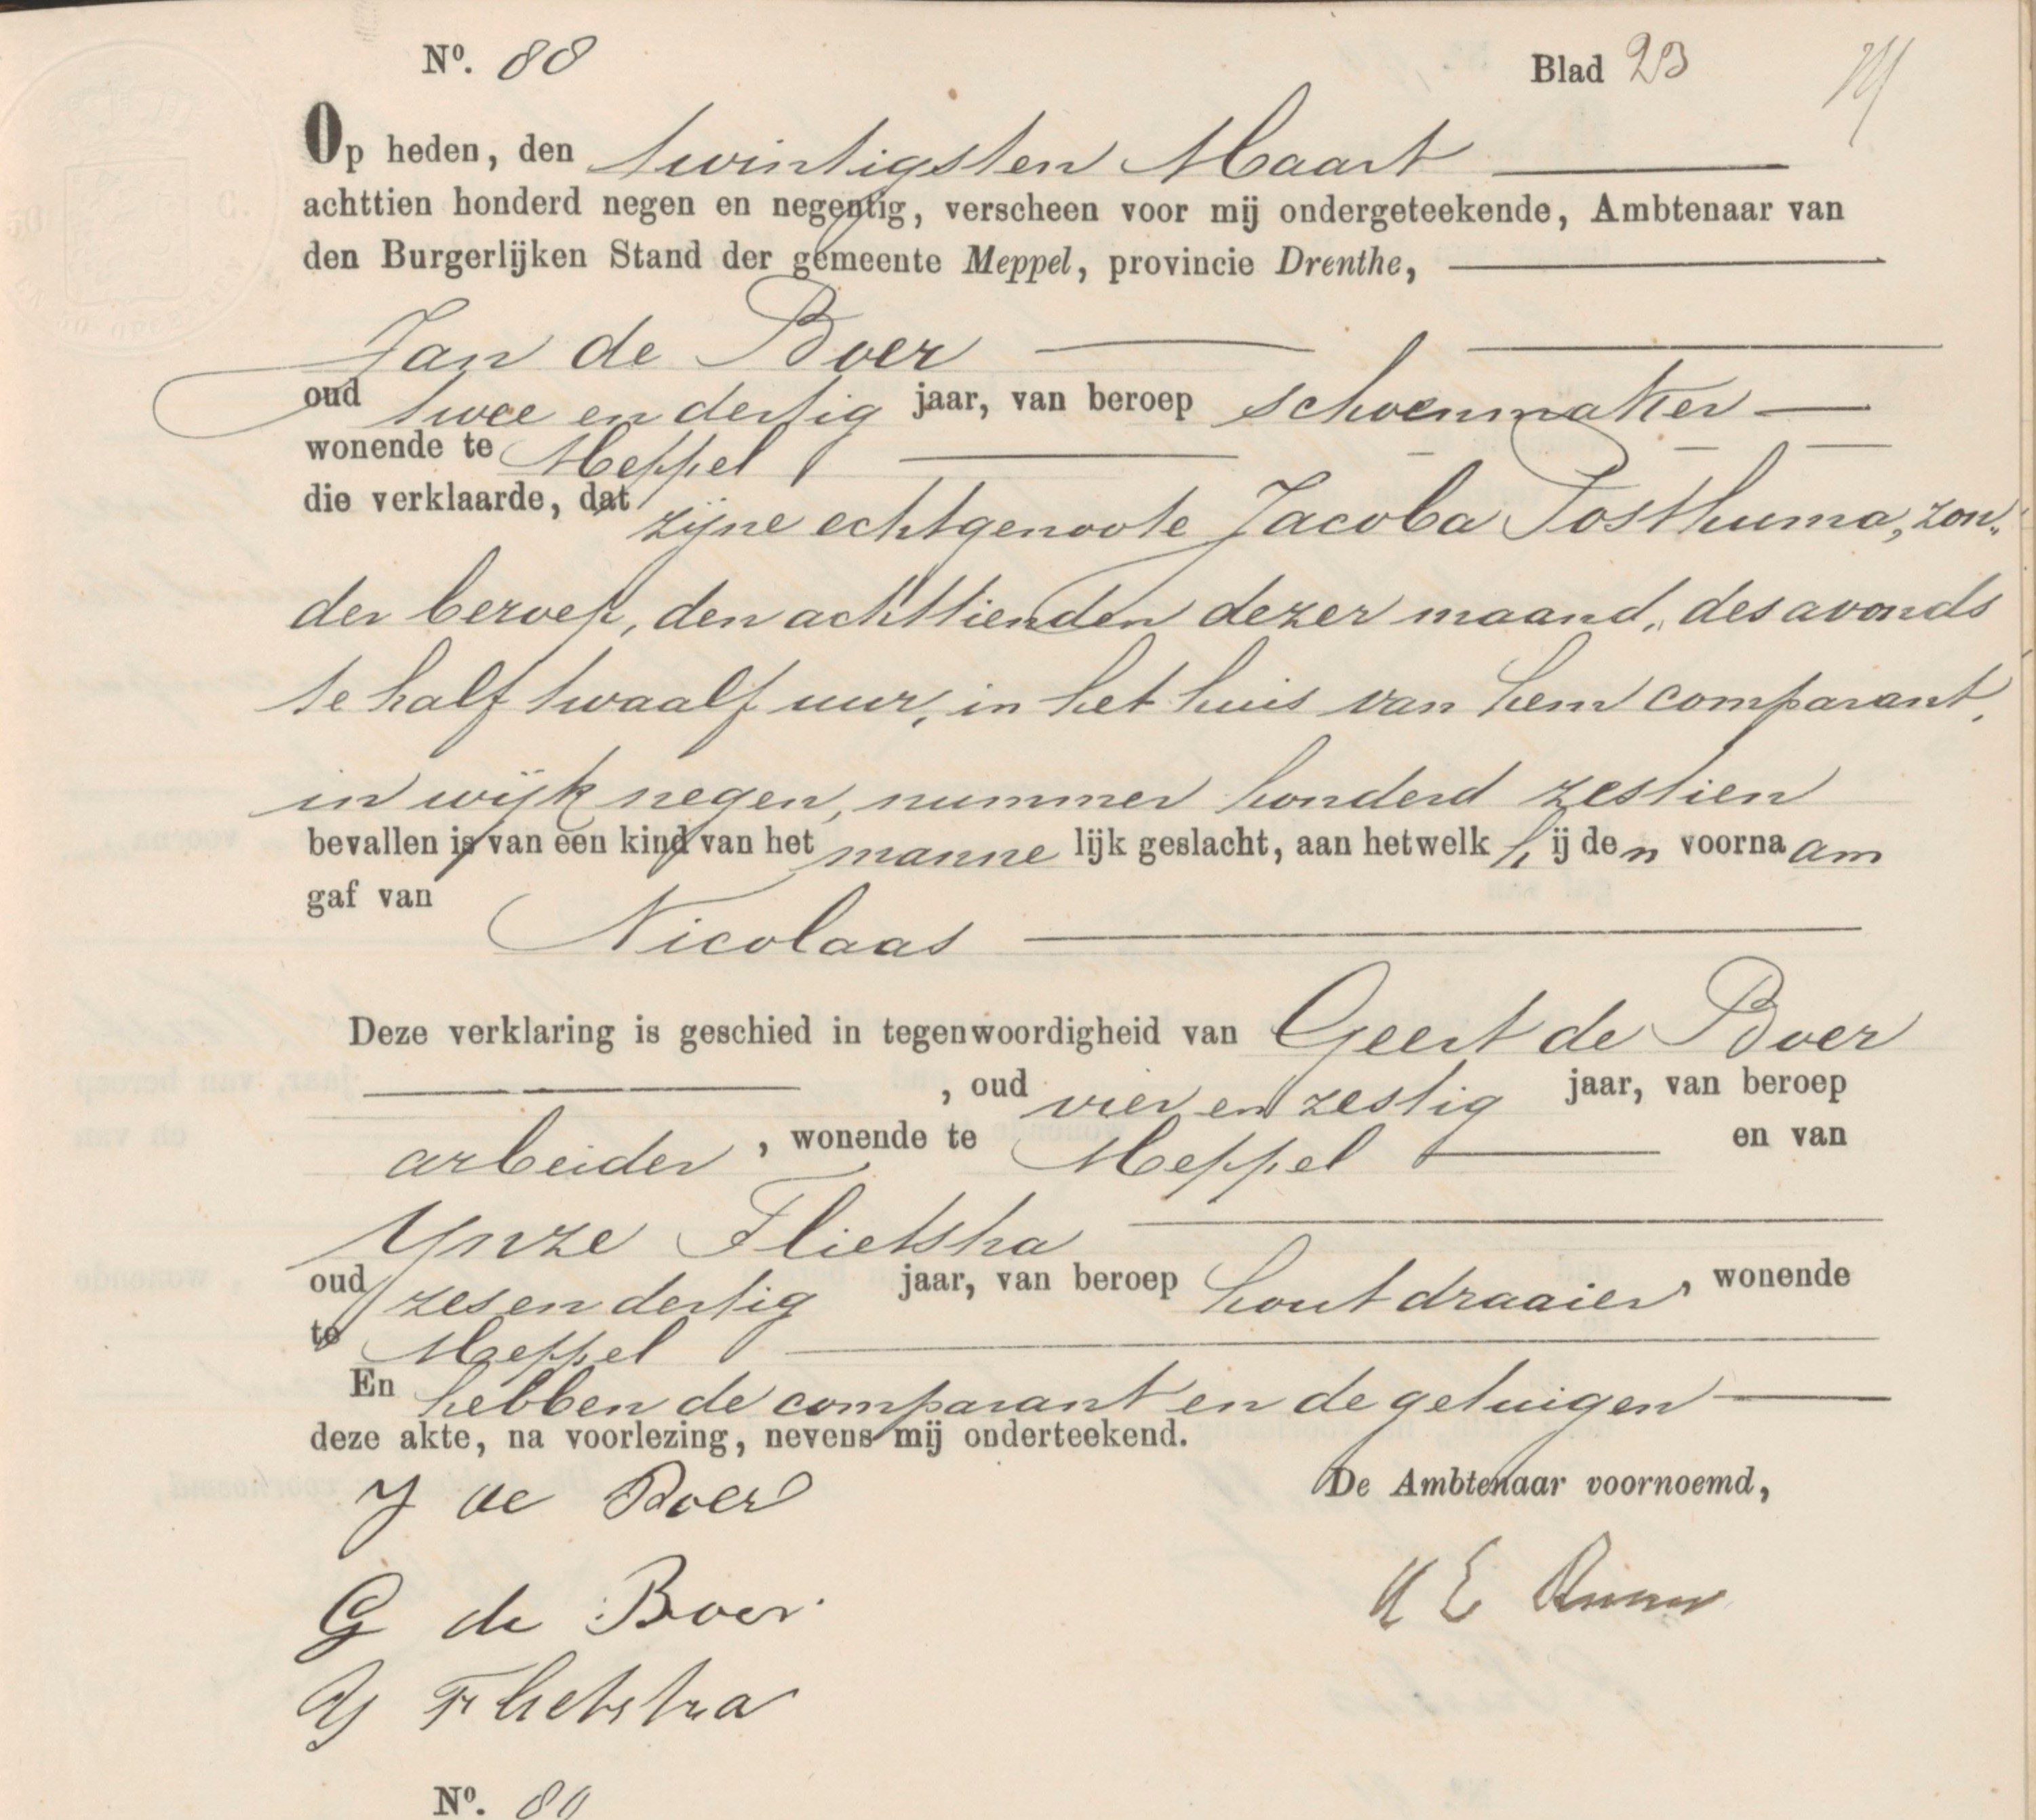 Nº. 88
Blad 23
Op heden, den twintigsten Maart
achttien honderd negen en negentig, verscheen voor mij ondergeteekende, Ambtenaar van
den Burgerlijken Stand der gemeente Meppel, provincie Drenthe,
Jan de Boer
oud twee en dertig jaar, van beroep schoenmaker
wonende te Meppel
die verklaarde, dat zijne echtgenoote Jacoba Posthuma, zon„
der beroep, den achttienden dezer maand, des avonds
te half twaalf uur, in het huis van hem comparant,
in wijk negen, nummer honderd zestien
bevallen is van een kind van het manne lijk geslacht, aan hetwelk h ij de n voorna am
gaf van Nicolaas
Deze verklaring is geschied in tegenwoordigheid van Geert de Boer
, oud vier en zestig jaar, van beroep
arbeider, wonende te Meppel en van
Ynze Flietstra
oud zes en dertig jaar, van beroep houtdraaier, wonende
te Meppel
En hebben de comparant en de getuigen
deze akte, na voorlezing, nevens mij onderteekend.
J de Boer
De Ambtenaar voornoemd,
G de Boer
Y Flietstra
Nº. 89